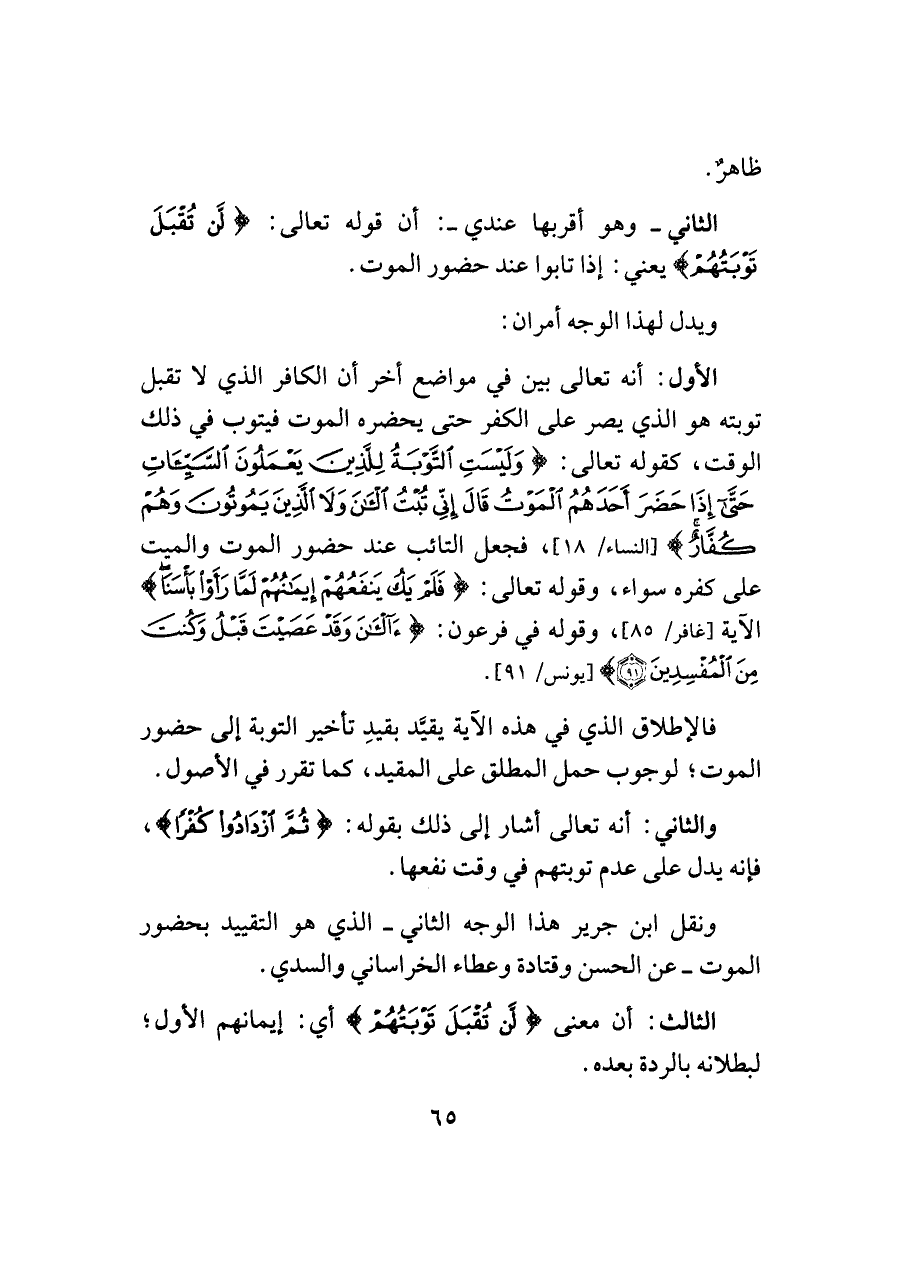 ظاهرٌ.
الثاني ـ وهو أقربها عندي ـ: أن قوله تعالى: ﴿ لَّن تُقْبَلَ
تَوْبَتُهُمْ﴾ يعني: إذا تابوا عند حضور الموت.
ويدل لهذا الوجه أمران:
الأول: أنه تعالى بين في مواضع أخر أن الكافر الذي لا تقبل
توبته هو الذي يصر على الكفر حتى يحضره الموت فيتوب في ذلك
الوقت، كقوله تعالى: ﴿ وَلَيْسَتِ ٱلتَّوْبَةُ لِلَّذِينَ يَعْمَلُونَ ٱلسَّيِّـَٔاتِ
حَتَّىٰٓ إِذَا حَضَرَ أَحَدَهُمُ ٱلْمَوْتُ قَالَ إِنِّي تُبْتُ ٱلْـَٰٔنَ وَلَا ٱلَّذِينَ يَمُوتُونَ وَهُمْ
كُفَّارٌۚ ﴾ [النساء/ ١٨]، فجعل التائب عند حضور الموت والميت
على كفره سواء، وقوله تعالى: ﴿ فَلَمْ يَكُ يَنفَعُهُمْ إِيمَٰنُهُمْ لَمَّا رَأَوْاْ بَأْسَنَاۖ ﴾
الآية [غافر/ ٨٥]، وقوله في فرعون: ﴿ ءَآلْـَٰٔنَ وَقَدْ عَصَيْتَ قَبْلُ وَكُنتَ
مِنَ ٱلْمُفْسِدِينَ ٩١﴾ [يونس/ ٩١].
فالإطلاق الذي في هذه الآية يقيَّد بقيدِ تأخير التوبة إلى حضور
الموت؛ لوجوب حمل المطلق على المقيد، كما تقرر في الأصول.
والثاني: أنه تعالى أشار إلى ذلك بقوله: ﴿ ثُمَّ ٱزْدَادُواْ كُفْرًا﴾،
فإنه يدل على عدم توبتهم في وقت نفعها.
ونقل ابن جرير هذا الوجه الثاني ـ الذي هو التقييد بحضور
الموت ـ عن الحسن وقتادة وعطاء الخراساني والسدي.
الثالث: أن معنى ﴿ لَّن تُقْبَلَ تَوْبَتُهُمْ ﴾ أي: إيمانهم الأول؛
لبطلانه بالردة بعده.
٦٥